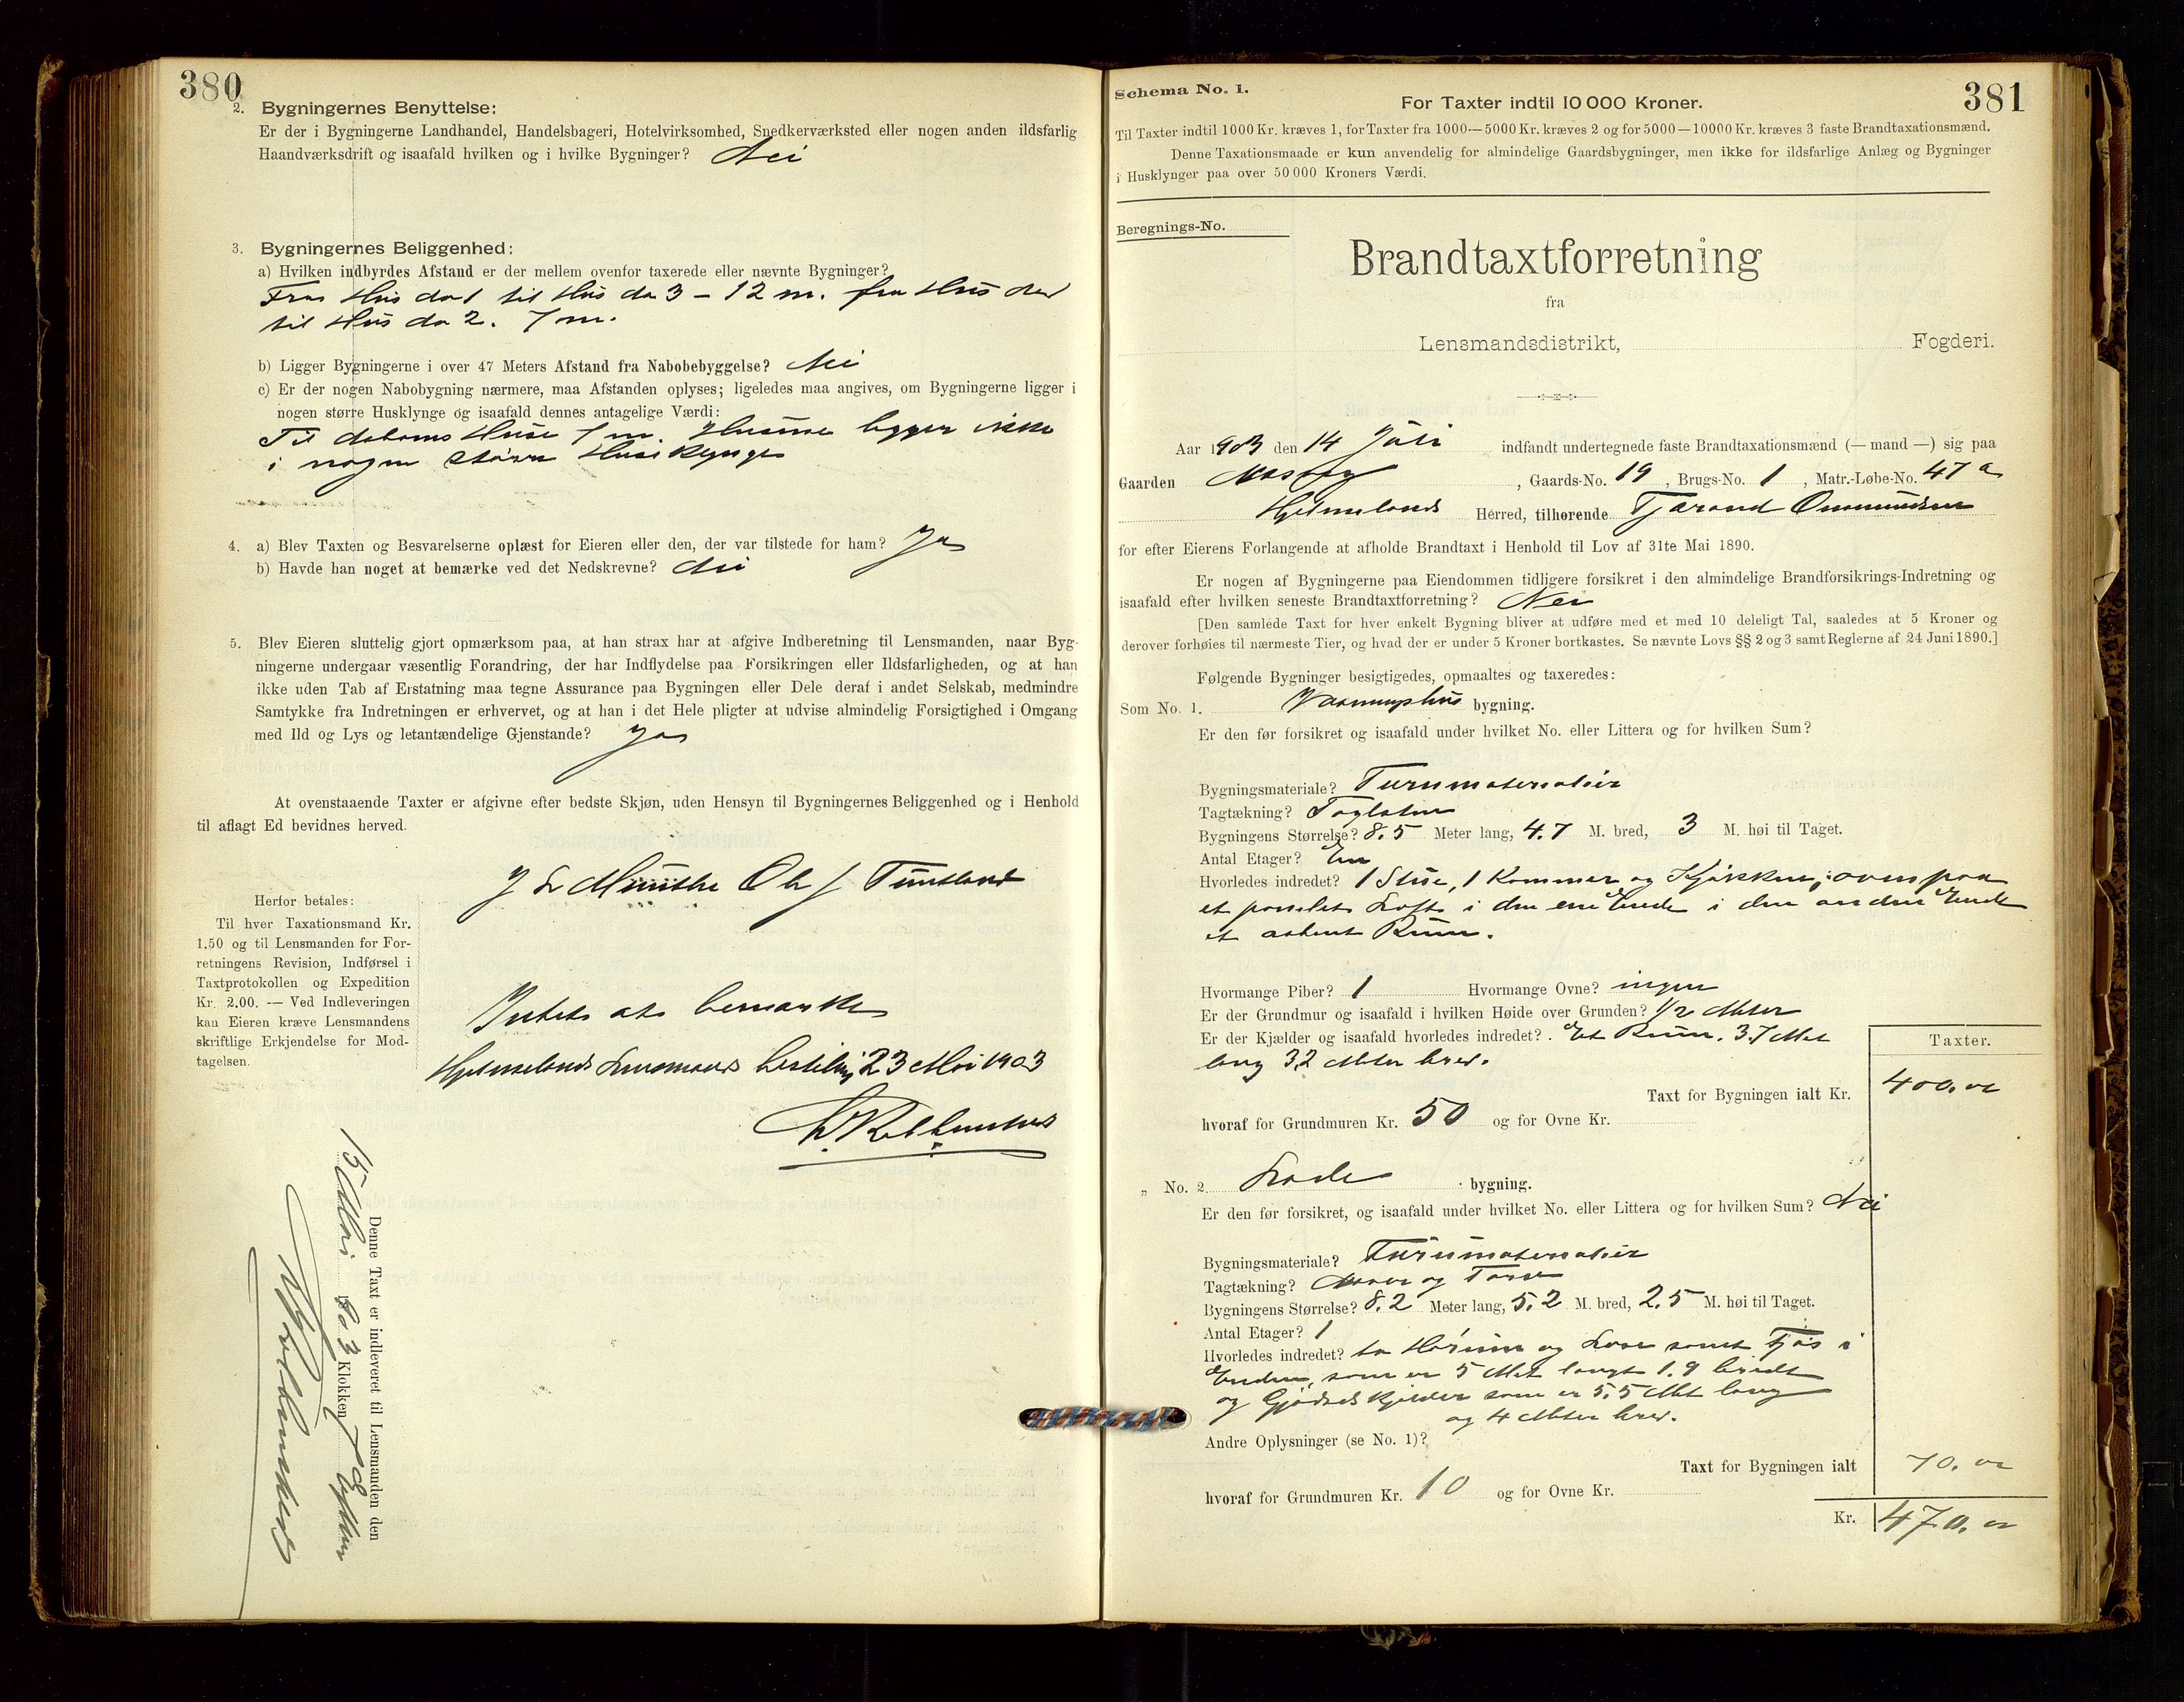 380
2. Bygningernes Benyttelse:
Er der i Bygningerne Landhandel, Handelsbageri, Hotelvirksomhed, Snedkerværksted eller nogen anden ildsfarlig
Haandværksdrift og isaafald hvilken og i hvilke Bygninger? Nei
3. Bygningernes Beliggenhed:
a) Hvilken indbyrdes Afstand er der mellem ovenfor taxerede eller nævnte Bygninger?
Fra Hus No 1 til Hus No 3 - 12 m. fra Hus No 1
til Hus No 2. 7 m.
b) Ligger Bygningerne i over 47 Meters Afstand fra Nabobebyggelse? Nei
c) Er der nogen Nabobygning nærmere, maa Afstanden oplyses; ligeledes maa angives, om Bygningerne ligger i
nogen større Husklynge og isaafald dennes antagelige Værdi:
Til Naboens Huse 7 m. Husene ligger ikke
i nogen større Huseklynge
4. a) Blev Taxten og Besvarelserne oplæst for Eieren eller den, der var tilstede for ham? Ja
b) Havde han noget at bemærke ved det Nedskrevne? Nei
5. Blev Eieren sluttelig gjort opmærksom paa, at han strax har at afgive Indberetning til Lensmanden, naar Byg-
ningerne undergaar væsentlig Forandring, der har Indflydelse paa Forsikringen eller Ildsfarligheden, og at han
ikke uden Tab af Erstatning maa tegne Assurance paa Bygningen eller Dele deraf i andet Selskab, medmindre
Samtykke fra Indretningen er erhvervet, og at han i det Hele pligter at udvise almindelig Forsigtighed i Omgang
med Ild og Lys og letantændelige Gjenstande? Ja
At ovenstaaende Taxter er afgivne efter bedste Skjøn, uden Hensyn til Bygningernes Beliggenhed og i Henhold
til aflagt Ed bevidnes herved.
Munthe Ole J Tuntland
Herfor betales:
Til hver Taxationsmand Kr.
1.50 og til Lensmanden for For-
retningens Revision, Indførsel i
Taxtprotokollen og Expedition
Kr. 2.00. — Ved Indleveringen
kan Eieren kræve Lensmandens
skriftlige Erkjendelse for Mod-
tagelsen.
Intet at bemærke
Hjelmelands Lensmands bestilling 23 Mai 1903
Denne Taxt er indleveret til Lensmanden den
15 Mai 1903 Klokken 7 Efterm
381
Schema No. 1.
For Taxter indtil 10 000 Kroner.
Til Taxter indtil 1000 Kr. kræves 1, for Taxter fra 1000—5000 Kr. kræves 2 og for 5000—10000 Kr. kræves 3 faste Brandtaxationsmænd.
Denne Taxationsmaade er kun anvendelig for almindelige Gaardsbygninger, men ikke for ildsfarlige Anlæg og Bygninger
i Husklynger paa over 50 000 Kroners Værdi.
Beregnings-No.
Brandtaxtforretning
fra
Lensmandsdistrikt, Fogderi.
Aar 1903 den 14 Juli indfandt undertegnede faste Brandtaxationsmænd (— mand —) sig paa
Gaarden , Gaards-No. 19, Brugs-No. 1, Matr.-Løbe-No. 47 a
Hjelmelands Herred, tilhørende Tjærand Ommundsen
for efter Eierens Forlangende at afholde Brandtaxt i Henhold til Lov af 31te Mai 1890.
Er nogen af Bygningerne paa Eiendommen tidligere forsikret i den almindelige Brandforsikrings-Indretning og
isaafald efter hvilken seneste Brandtaxtforretning? Nei
[Den samlede Taxt for hver enkelt Bygning bliver at udføre med et med 10 deleligt Tal, saaledes at 5 Kroner og
derover forhøies til nærmeste Tier, og hvad der er under 5 Kroner bortkastes. Se nævnte Lovs §§ 2 og 3 samt Reglerne af 24 Juni 1890.]
Følgende Bygninger besigtigedes, opmaaltes og taxeredes:
Som No. 1. Vaaningshus bygning.
Er den før forsikret og isaafald under hvilket No. eller Littera og for hvilken Sum?
Bygningsmateriale? Furumaterialier
Tagtækning? Taglsten
Bygningens Størrelse? 8.5 Meter lang, 4.7 M. bred, 3 M. høi til Taget.
Antal Etager? En
Hvorledes indredet? 1 Stue, 1 Kammer og Kjøkken, ovenpaa
et panelet Loft i den ene Ende i den anden Ende
et aabent Rum.
Hvormange Piber? 1 Hvormange Ovne? ingen
Er der Grundmur og isaafald i hvilken Høide over Grunden? 1/2 Meter
Er der Kjælder og isaafald hvorledes indredet? Et Rum. 3.7 Met
lang 3.2 Meter bred.
Taxter.
Taxt for Bygningen ialt Kr. 400.00
hvoraf for Grundmuren Kr. 50 og for Ovne Kr.
„ No. 2. Lade bygning.
Er den før forsikret, og isaafald under hvilket No. eller Littera og for hvilken Sum? Nei
Bygningsmateriale? Furumaterialier
Tagtækning? Næver og Torv
Bygningens Størrelse? 8.2 Meter lang, 5.2 M. bred, 2.5 M. høi til Taget.
Antal Etager? 1
Hvorledes indredet? to Hørum og Love samt Fjøs i
Enden, som er 5 Met langt 1.9 bredt
og Gjødselskjelder som er 5.5 Met lang
og 4 Meter bred.
Andre Oplysninger (se No. 1)?
Taxt for Bygningen ialt 70.00
hvoraf for Grundmuren Kr. 10 og for Ovne Kr.
Kr. 470.00